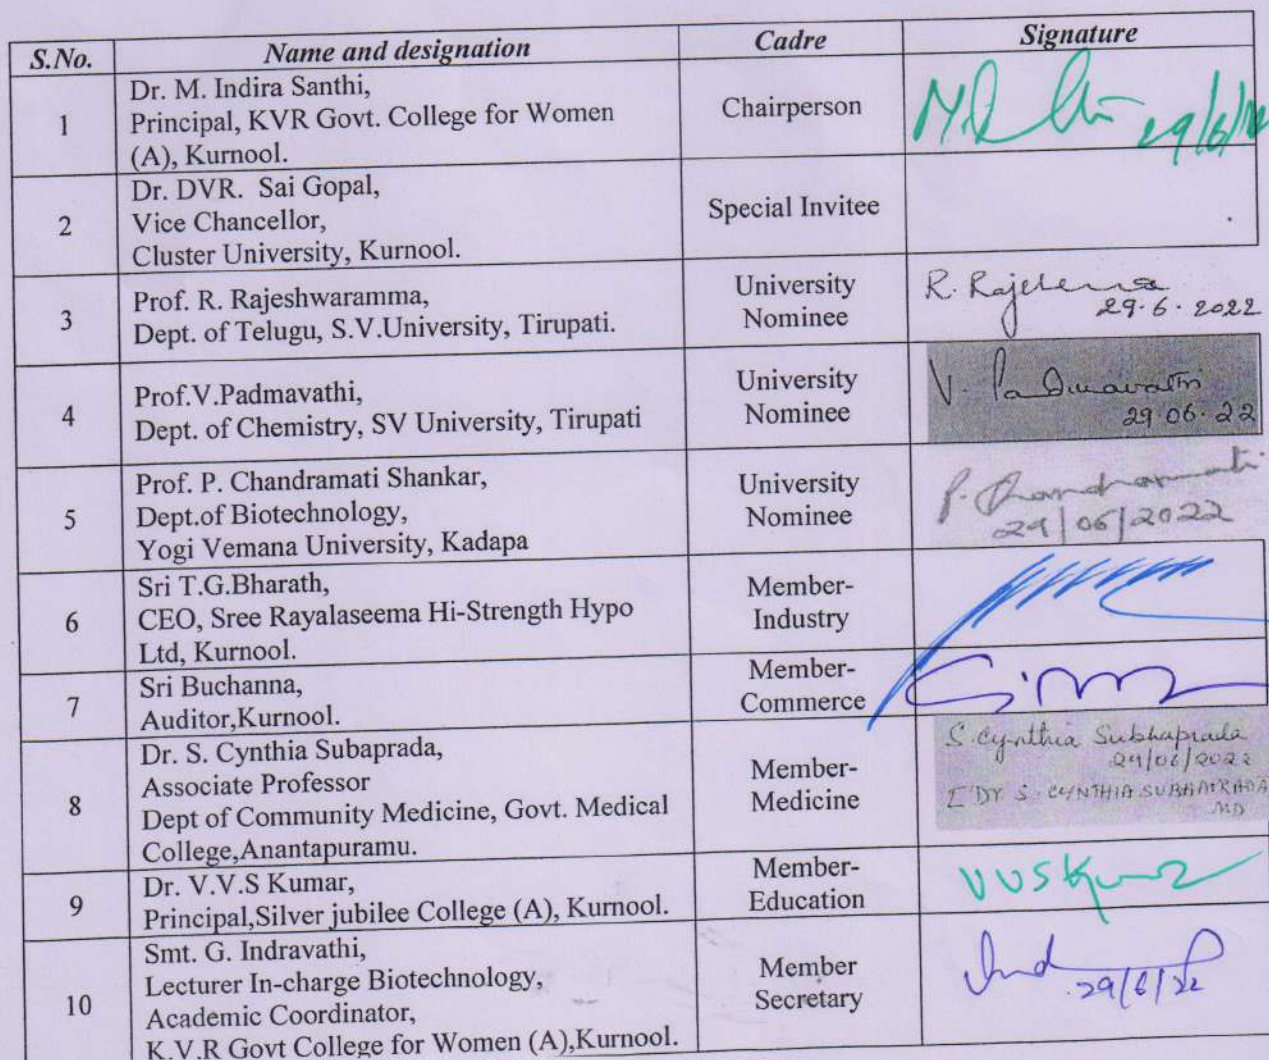 S.No. Name and designation Cadre Signature
1
Dr. M. Indira Santhi,
Principal, KVR Govt. College for Women
(A), Kurnool.
Chairperson
29/6/22
2
Dr. DVR. Sai Gopal,
Vice Chancellor,
Cluster University, Kurnool.
Special Invitee
3
Prof. R. Rajeshwaramma,
Dept. of Telugu, S.V.University, Tirupati.
University
Nominee
R.
29.6.2022
4
Prof.V.Padmavathi,
Dept. of Chemistry, SV University, Tirupati
University
Nominee
V. Padmavathi
29.06.22
5
Prof. P. Chandramati Shankar,
Dept.of Biotechnology,
Yogi Vemana University, Kadapa
University
Nominee
P. Chandramati
29/06/2022
6
Sri T.G.Bharath,
CEO, Sree Rayalaseema Hi-Strength Hypo
Ltd, Kurnool.
Member-
Industry
7
Sri Buchanna,
Auditor,Kurnool.
Member-
Commerce
8
Dr. S. Cynthia Subaprada,
Associate Professor
Dept of Community Medicine, Govt. Medical
College,Anantapuramu.
Member-
Medicine
S. Cynthia Subhaprada
29/06/2022
DR S. CYNTHIA SUBHAPRADA
MD
9
Dr. V.V.S Kumar,
Principal,Silver jubilee College (A), Kurnool.
Member-
Education
VVSKumar
10
Smt. G. Indravathi,
Lecturer In-charge Biotechnology,
Academic Coordinator,
K.V.R Govt College for Women (A),Kurnool.
Member
Secretary
29/6/22